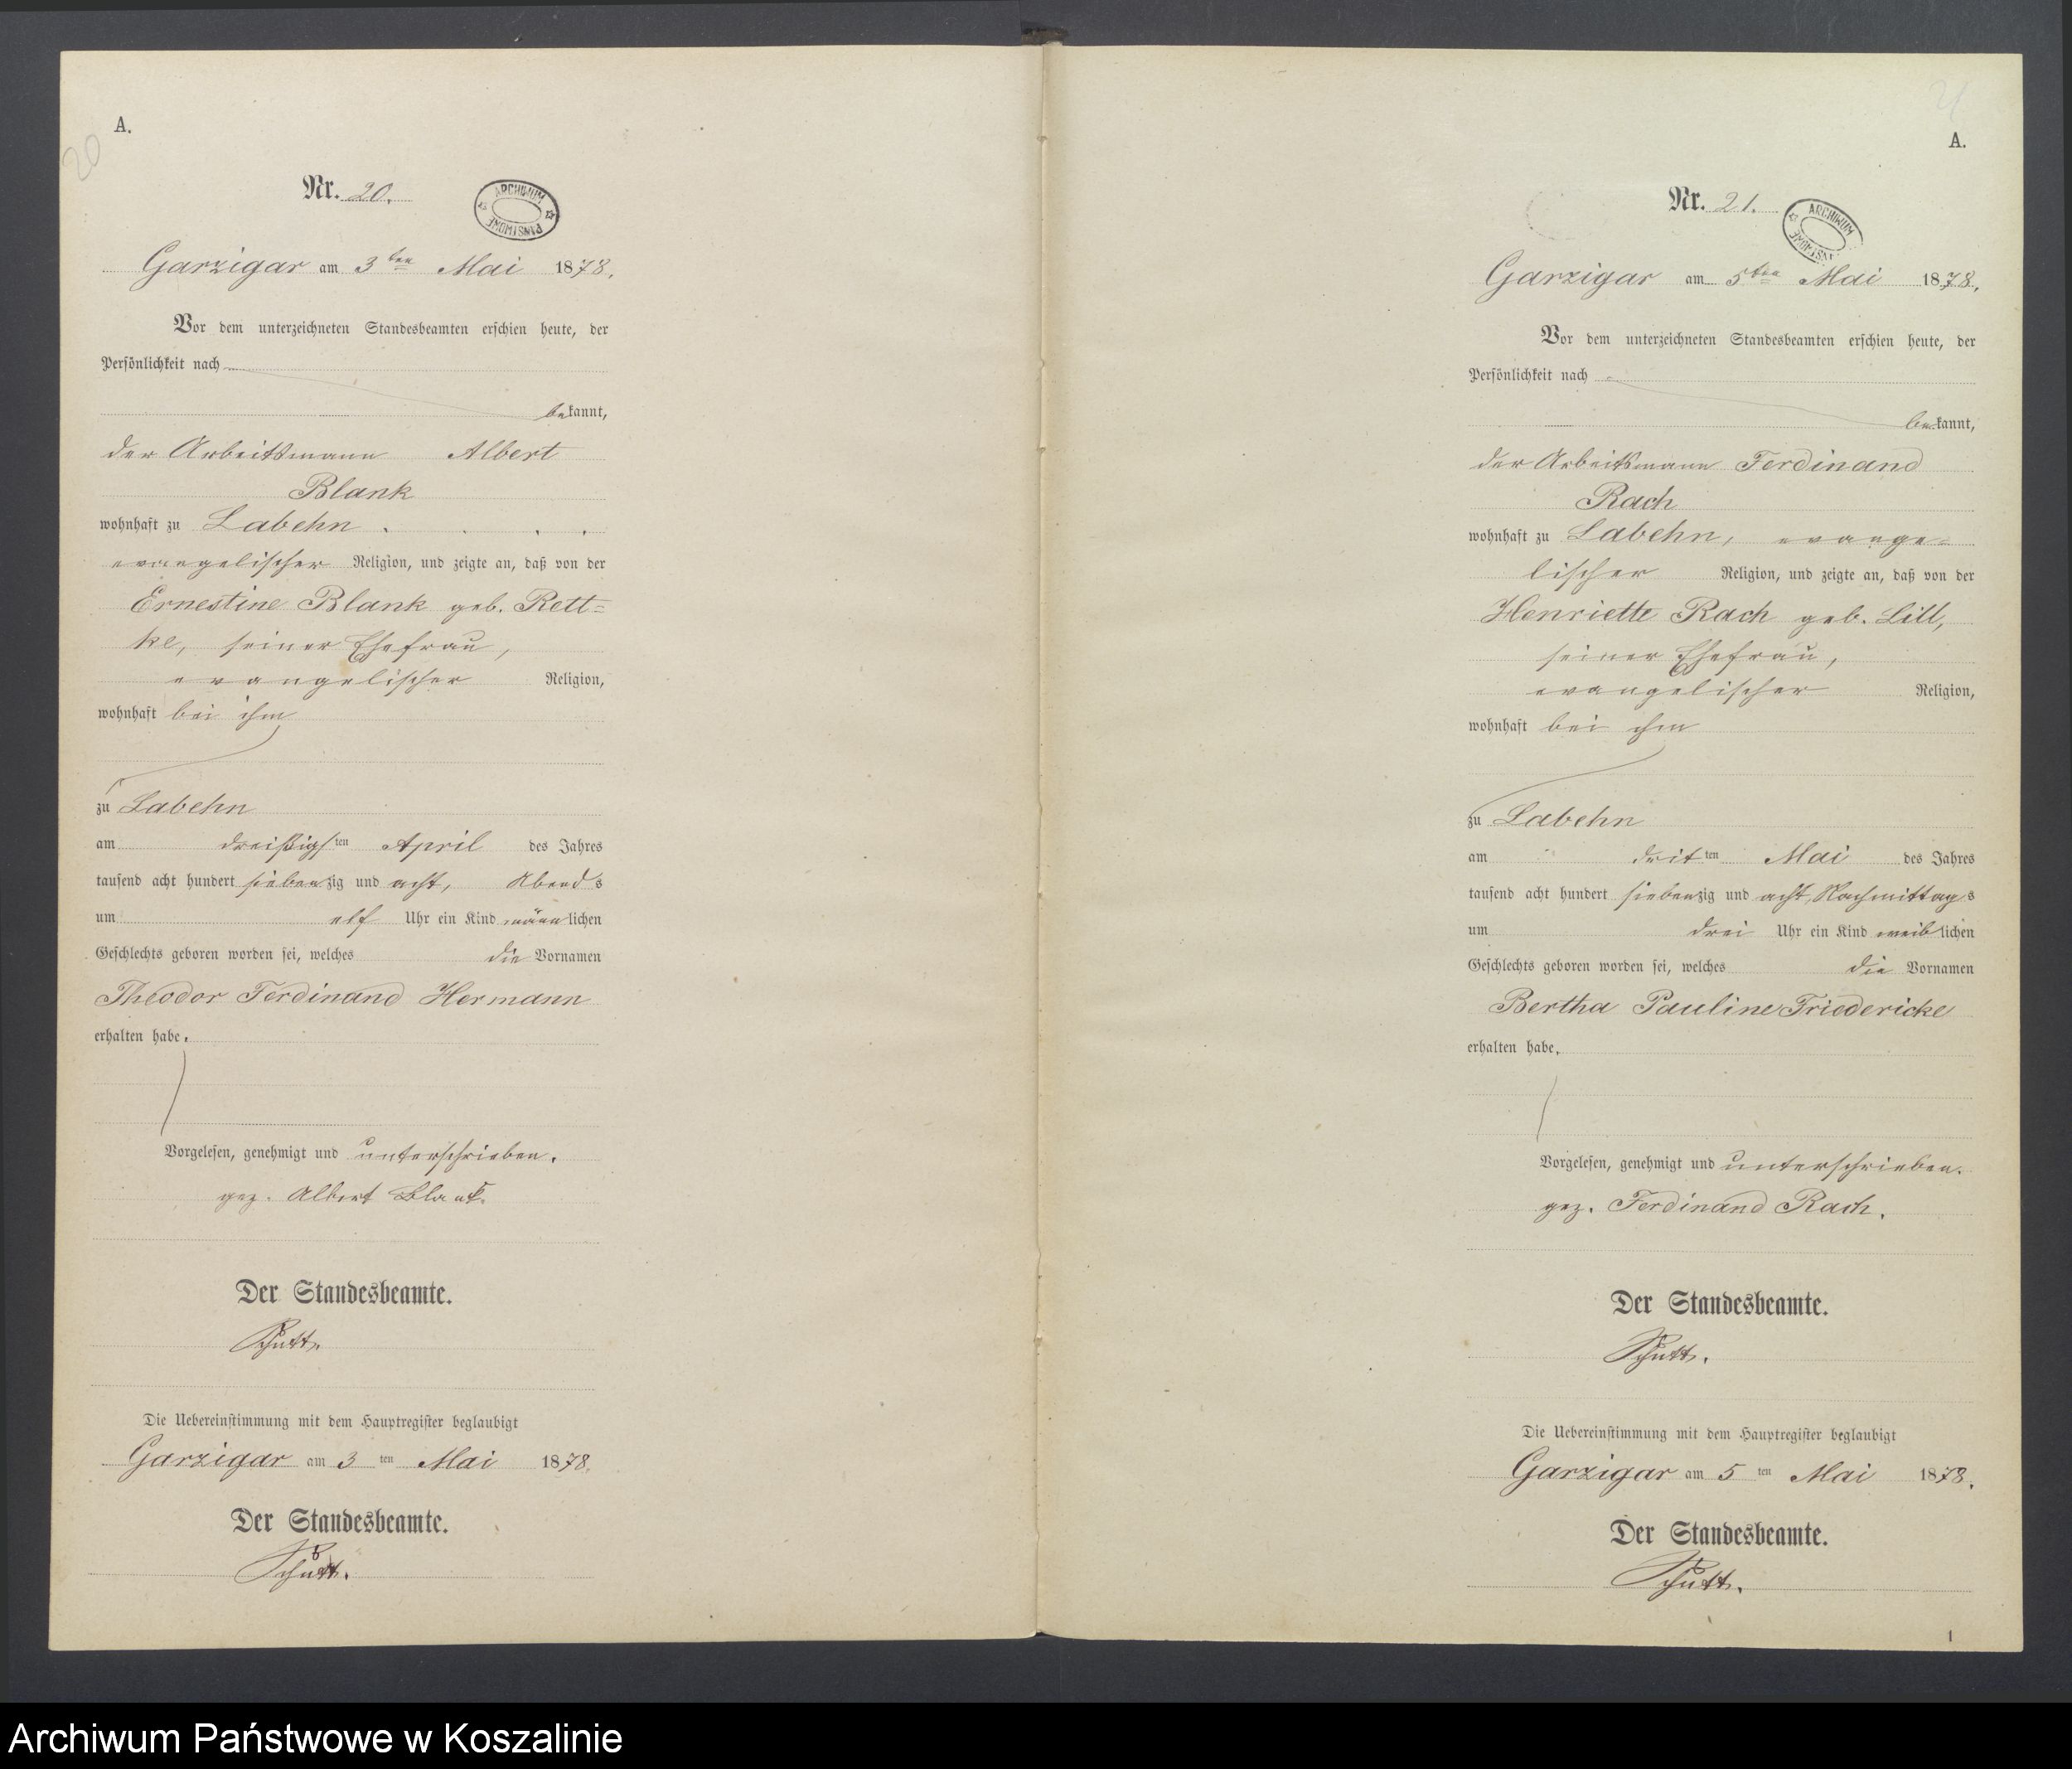 20
A.
Nr. 20.
ARCHIWUM PAŃSTWOWE
Garzigar am 3ten Mai 1878.
Vor dem unterzeichneten Standesbeamten erschien heute, der
Persönlichkeit nach
bekannt,
der Arbeitsmann Albert
Blank
wohnhaft zu Labehn
evangelischer Religion, und zeigte an, daß von der
Ernestine Blank geb. Rett=
ke, seiner Ehefrau,
evangelischer Religion,
wohnhaft bei ihm
zu Labehn
am dreißigsten April des Jahres
tausend acht hundert siebenzig und acht, Abends
um elf Uhr ein Kind männlichen
Geschlechts geboren worden sei, welches die Vornamen
Theodor Ferdinand Hermann
erhalten habe.
Vorgelesen, genehmigt und unterschrieben.
gez. Albert Blank.
Der Standesbeamte.
Schütt.
Die Uebereinstimmung mit dem Hauptregister beglaubigt
Garzigar am 3ten Mai 1878.
Der Standesbeamte.
Schütt.
21
A.
Nr. 21.
ARCHIWUM PAŃSTWOWE
Garzigar am 5ten Mai 1878.
Vor dem unterzeichneten Standesbeamten erschien heute, der
Persönlichkeit nach
bekannt,
der Arbeitsmann Ferdinand
Rach
wohnhaft zu Labehn, evange=
lischer Religion, und zeigte an, daß von der
Henriette Rach geb. Lill,
seiner Ehefrau,
evangelischer Religion,
wohnhaft bei ihm
zu Labehn
am dritten Mai des Jahres
tausend acht hundert siebenzig und acht, Nachmittags
um drei Uhr ein Kind weiblichen
Geschlechts geboren worden sei, welches die Vornamen
Bertha Pauline Friedericke
erhalten habe.
Vorgelesen, genehmigt und unterschrieben.
gez. Ferdinand Rach.
Der Standesbeamte.
Schütt.
Die Uebereinstimmung mit dem Hauptregister beglaubigt
Garzigar am 5ten Mai 1878.
Der Standesbeamte.
Schütt.
1
Archiwum Państwowe w Koszalinie